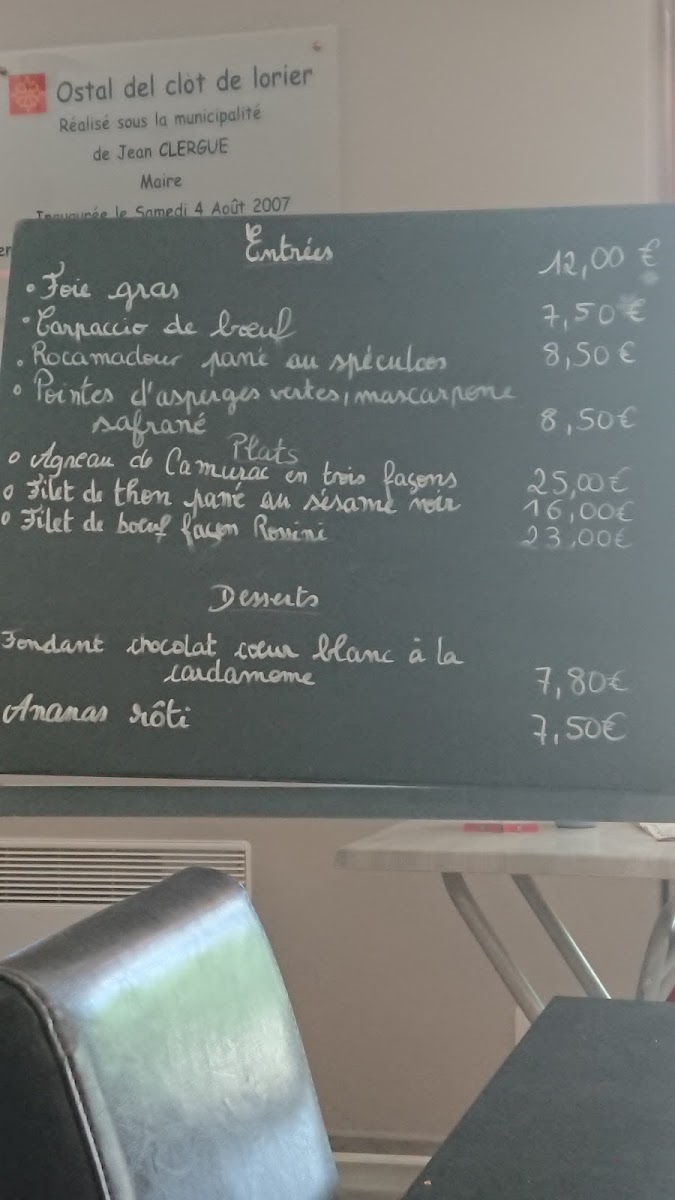 Ostal del clòt de lorier
Réalisé sous la municipalité
de Jean CLERGUE
Maire
Inaugurée le Samedi 4 Août 2007
Entrées
• Foie gras 12,00 €
• Carpaccio de bœuf 7,50 €
• Rocamadour pané au spéculoos 8,50 €
• Pointes d'asperges vertes, mascarpone
safrané 8,50€
Plats
• Agneau de Camurac en trois façons 25,00€
• Filet de thon pané au sésame noir 16,00€
• Filet de boeuf façon Rossini 23,00€
Desserts
Fondant chocolat coeur blanc à la
cardamome 7,80€
Ananas rôti 7,50€